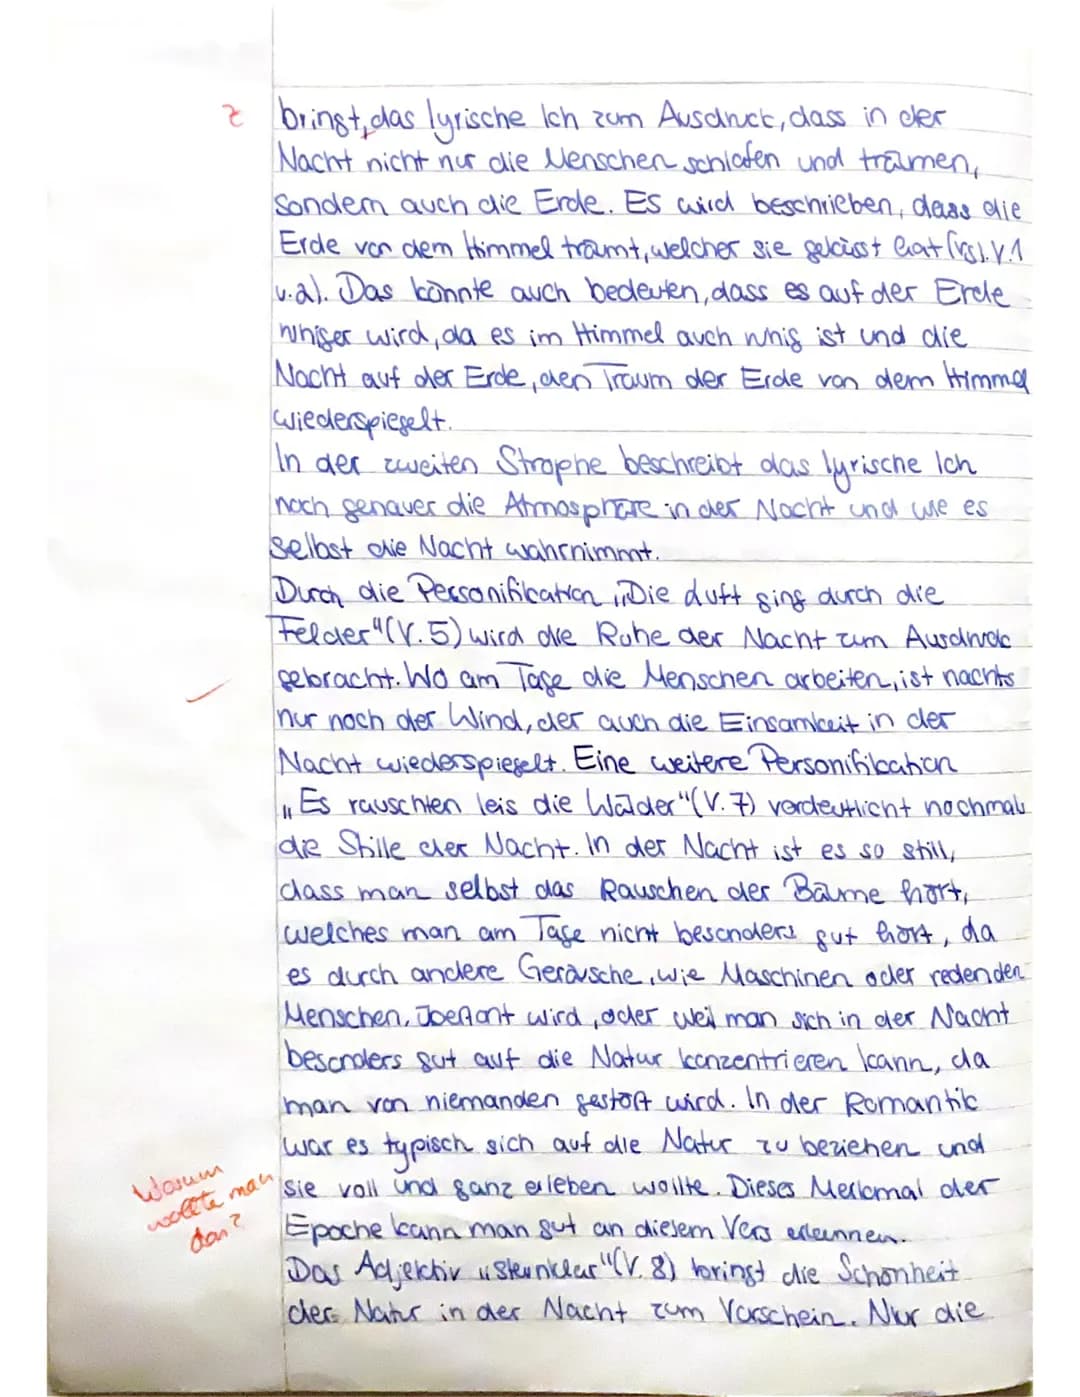 z bringt, das lyrische Ich zum Ausdruck, dass in der
Nacht nicht nur die Menschen schlafen und träumen,
sondern auch die Erde. Es wird beschrieben, dass die
Erde von dem Himmel träumt, welcher sie geküsst hat (vgl. V.1
u.2). Das könnte auch bedeuten, dass es auf der Erde
ruhiger wird, da es im Himmel auch ruhig ist und die
Nacht auf der Erde, den Traum der Erde von dem Himmel
wiederspiegelt.
In der zweiten Strophe beschreibt das lyrische Ich
noch genauer die Atmosphäre in der Nacht und wie es
selbst die Nacht wahrnimmt.
Durch die Personifikation „Die Luft ging durch die
Felder" (V. 5) wird die Ruhe der Nacht zum Ausdruck
gebracht. Wo am Tage die Menschen arbeiten, ist nachts
nur noch der Wind, der auch die Einsamkeit in der
Nacht wiederspiegelt. Eine weitere Personifikation
„Es rauschten leis die Wälder" (V. 7) verdeutlicht nochmals
die Stille der Nacht. In der Nacht ist es so still,
dass man selbst das Rauschen der Bäume hört,
welches man am Tage nicht besonders gut hört, da
es durch andere Geräusche, wie Maschinen oder redenden
Menschen, übertönt wird, oder weil man sich in der Nacht
besonders gut auf die Natur konzentrieren kann, da
man von niemanden gestört wird. In der Romantik
war es typisch sich auf die Natur zu beziehen und
Warum wollte man das?
sie voll und ganz erleben wollte. Dieses Merkmal der
Epoche kann man gut an diesem Vers erkennen.
Das Adjektiv „sternklar" (V. 8) bringt die Schönheit
der Natur in der Nacht zum Vorschein. Nur die